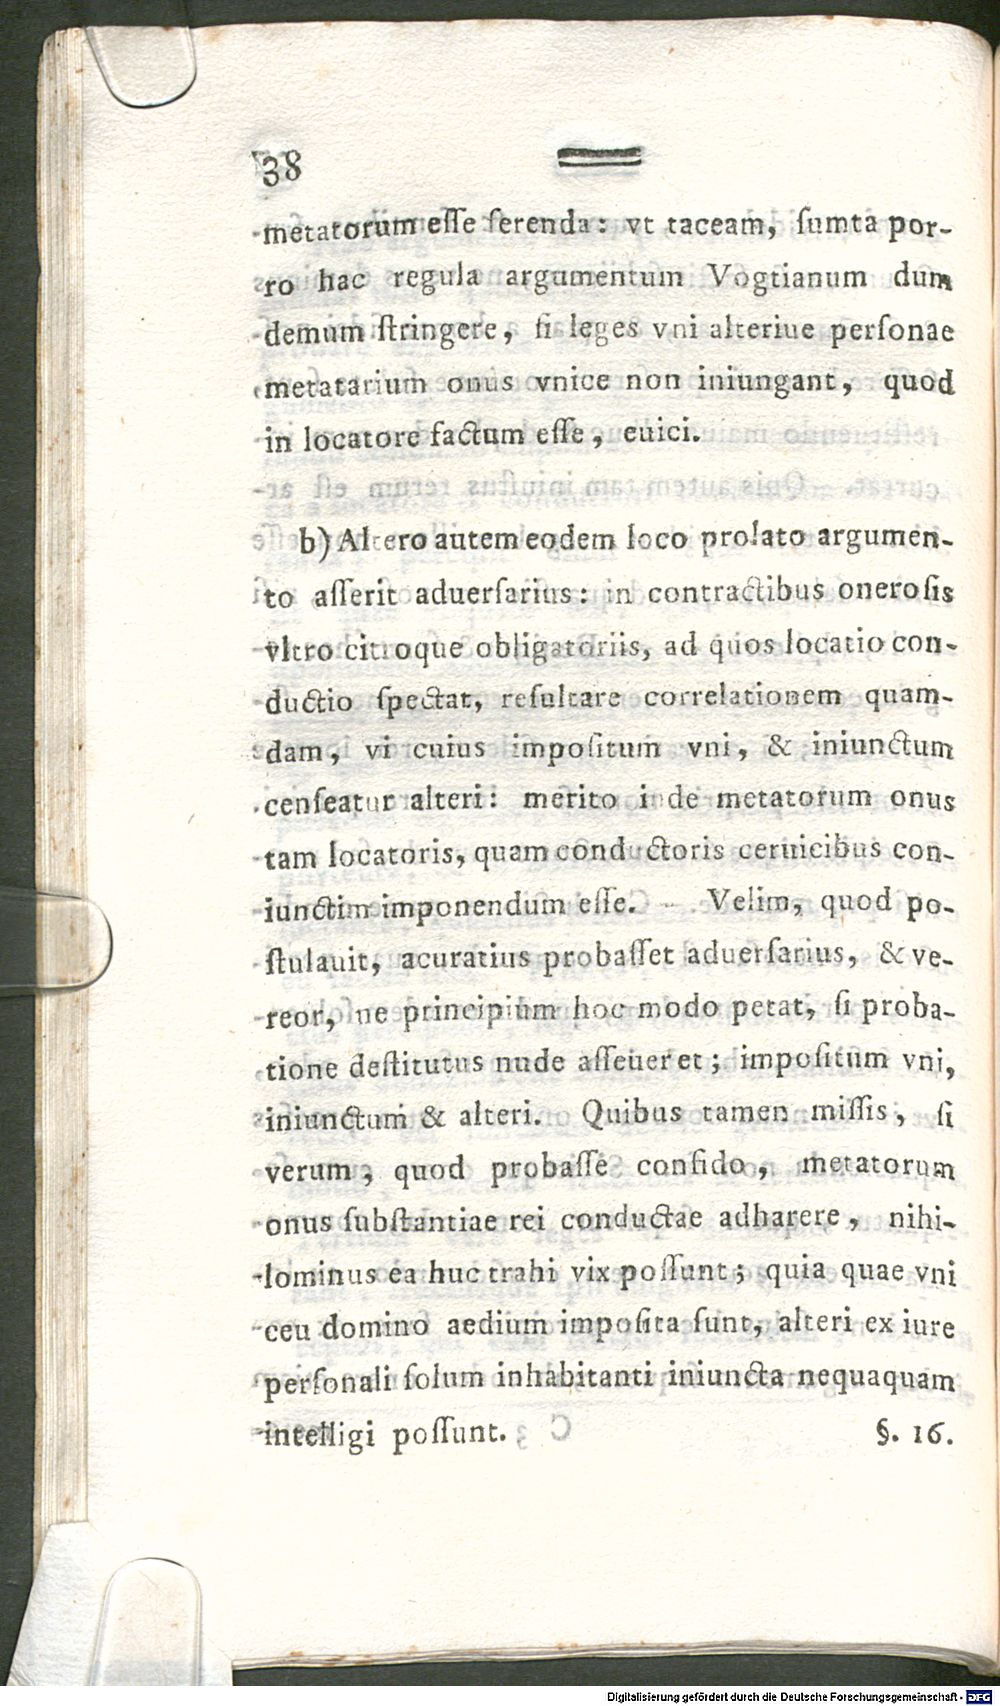 38
metatorum eſſe ferenda: vt taceam, ſumta por-
ro hac regula argumentum Vogtianum dum
demum ſtringere, ſi leges vni alteriue perſonae
metatarium onus vnice non iniungant, quod
in locatore factum eſſe, euici.
b) Altero autem eodem loco prolato argumen-
to aſſerit aduerſarius: in contractibus oneroſis
vltro citroque obligatoriis, ad quos locatio con-
ductio ſpectat, reſultare correlationem quam-
dam, vi cuius impoſitum vni, & iniunctum
cenſeatur alteri: merito inde metatorum onus
tam locatoris, quam conductoris ceruicibus con-
iunctim imponendum eſſe. – Velim, quod po-
ſtulauit, acuratius probaſſet aduerſarius, & ve-
reor, ne principium hoc modo petat, ſi proba-
tione deſtitutus nude aſſeueret; impoſitum vni,
iniunctum & alteri. Quibus tamen miſſis, ſi
verum, quod probaſſe confido, metatorum
onus ſubſtantiae rei conductae adharere, nihi-
lominus ea huc trahi vix poſſunt; quia quae vni
ceu domino aedium impoſita ſunt, alteri ex iure
perſonali ſolum inhabitanti iniuncta nequaquam
intelligi poſſunt. §. 16.
Digitalisierung gefördert durch die Deutsche Forschungsgemeinschaft - DFG